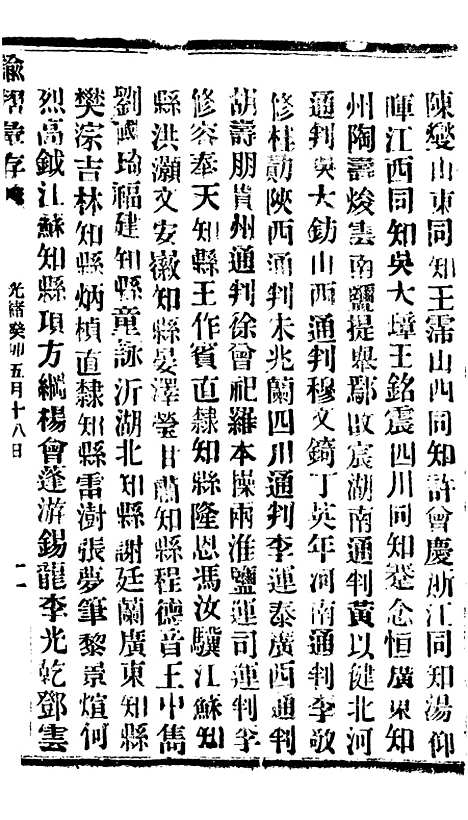 陳燮山東同知王霈山西同知許會慶浙江同知湯仰
暉江西同知吳大璋王銘震四川同知楚念恒廣東知
州陶壽焌雲南鹽提舉鄢敃宸湖南通判黃以健北河
通判吳大鈁山西通判穆文錡丁英年河南通判李敬
修桂勛陝西通判木兆蘭四川通判李運泰廣西通判
胡壽朋貴州通判徐會祀羅本操兩淮鹽運司運判李
修容奉天知縣王作賓直隸知縣隆恩馮汝驥江蘇知
縣洪灝文安徽知縣晏澤瑩甘肅知縣程德音王中雋
劉國瑜福建知縣童詠沂湖北知縣謝廷蘭廣東知縣
樊淙吉林知縣炳楨直隸知縣雷澍張夢筆黎景煊何
烈高鉞江蘇知縣項方綱楊會蓬游錫龍李光乾鄧雲
諭摺彙存
光緒癸卯五月十八日
十一